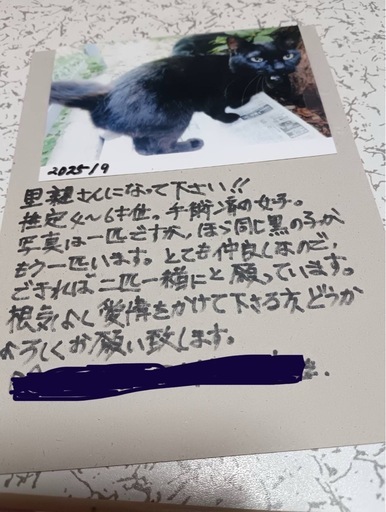 2025/9
里親さんになって下さい!!
推定4〜6才位。手術済の女子。
写真は一匹ですが、ほぼ同じ黒の子が
もう一匹います。とても仲良しなので、
できれば二匹一緒にと願っています。
根気よく愛情をかけて下さる方、どうか
よろしくお願い致します。